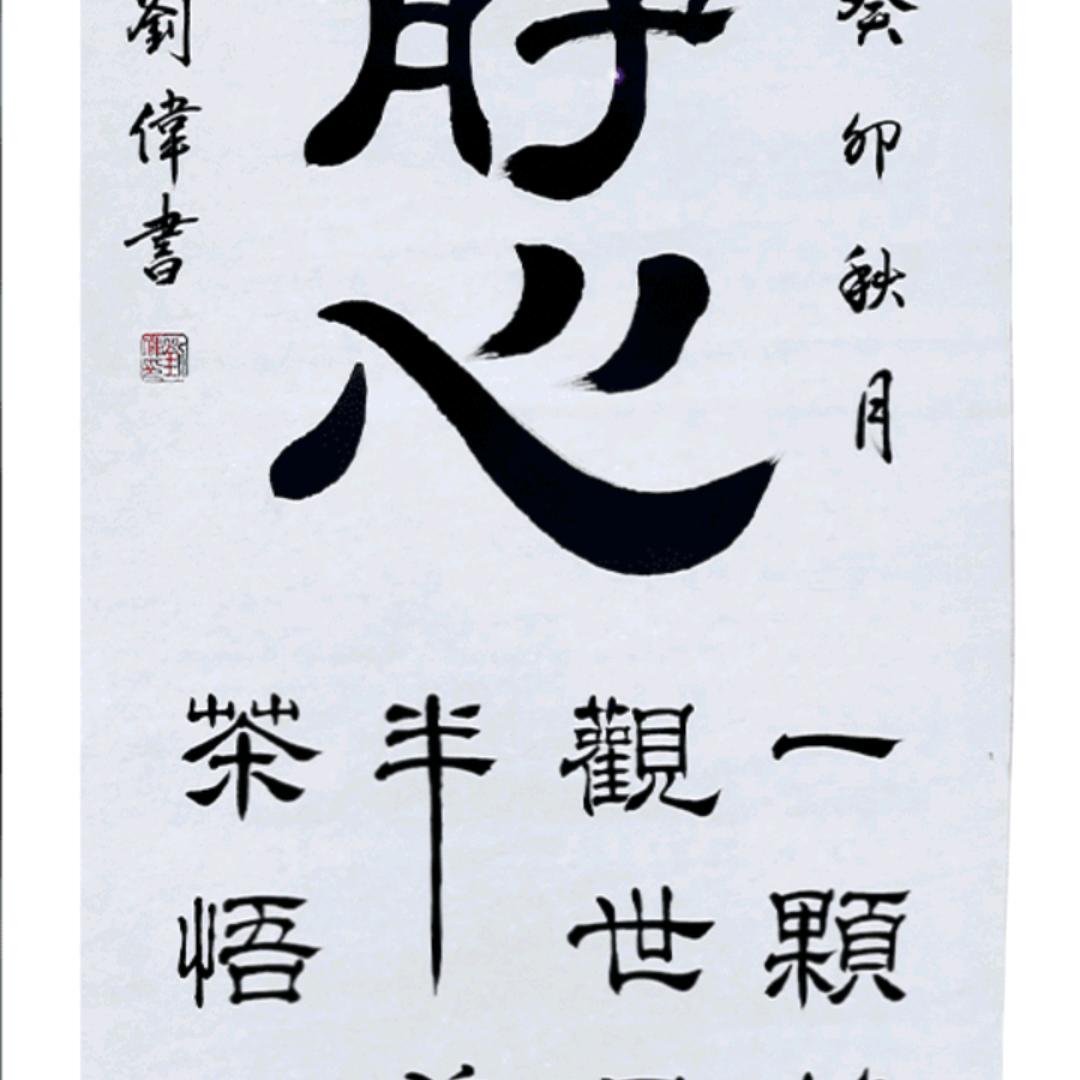 癸卯秋月
心
劉偉書
一顆
觀世
半
茶悟